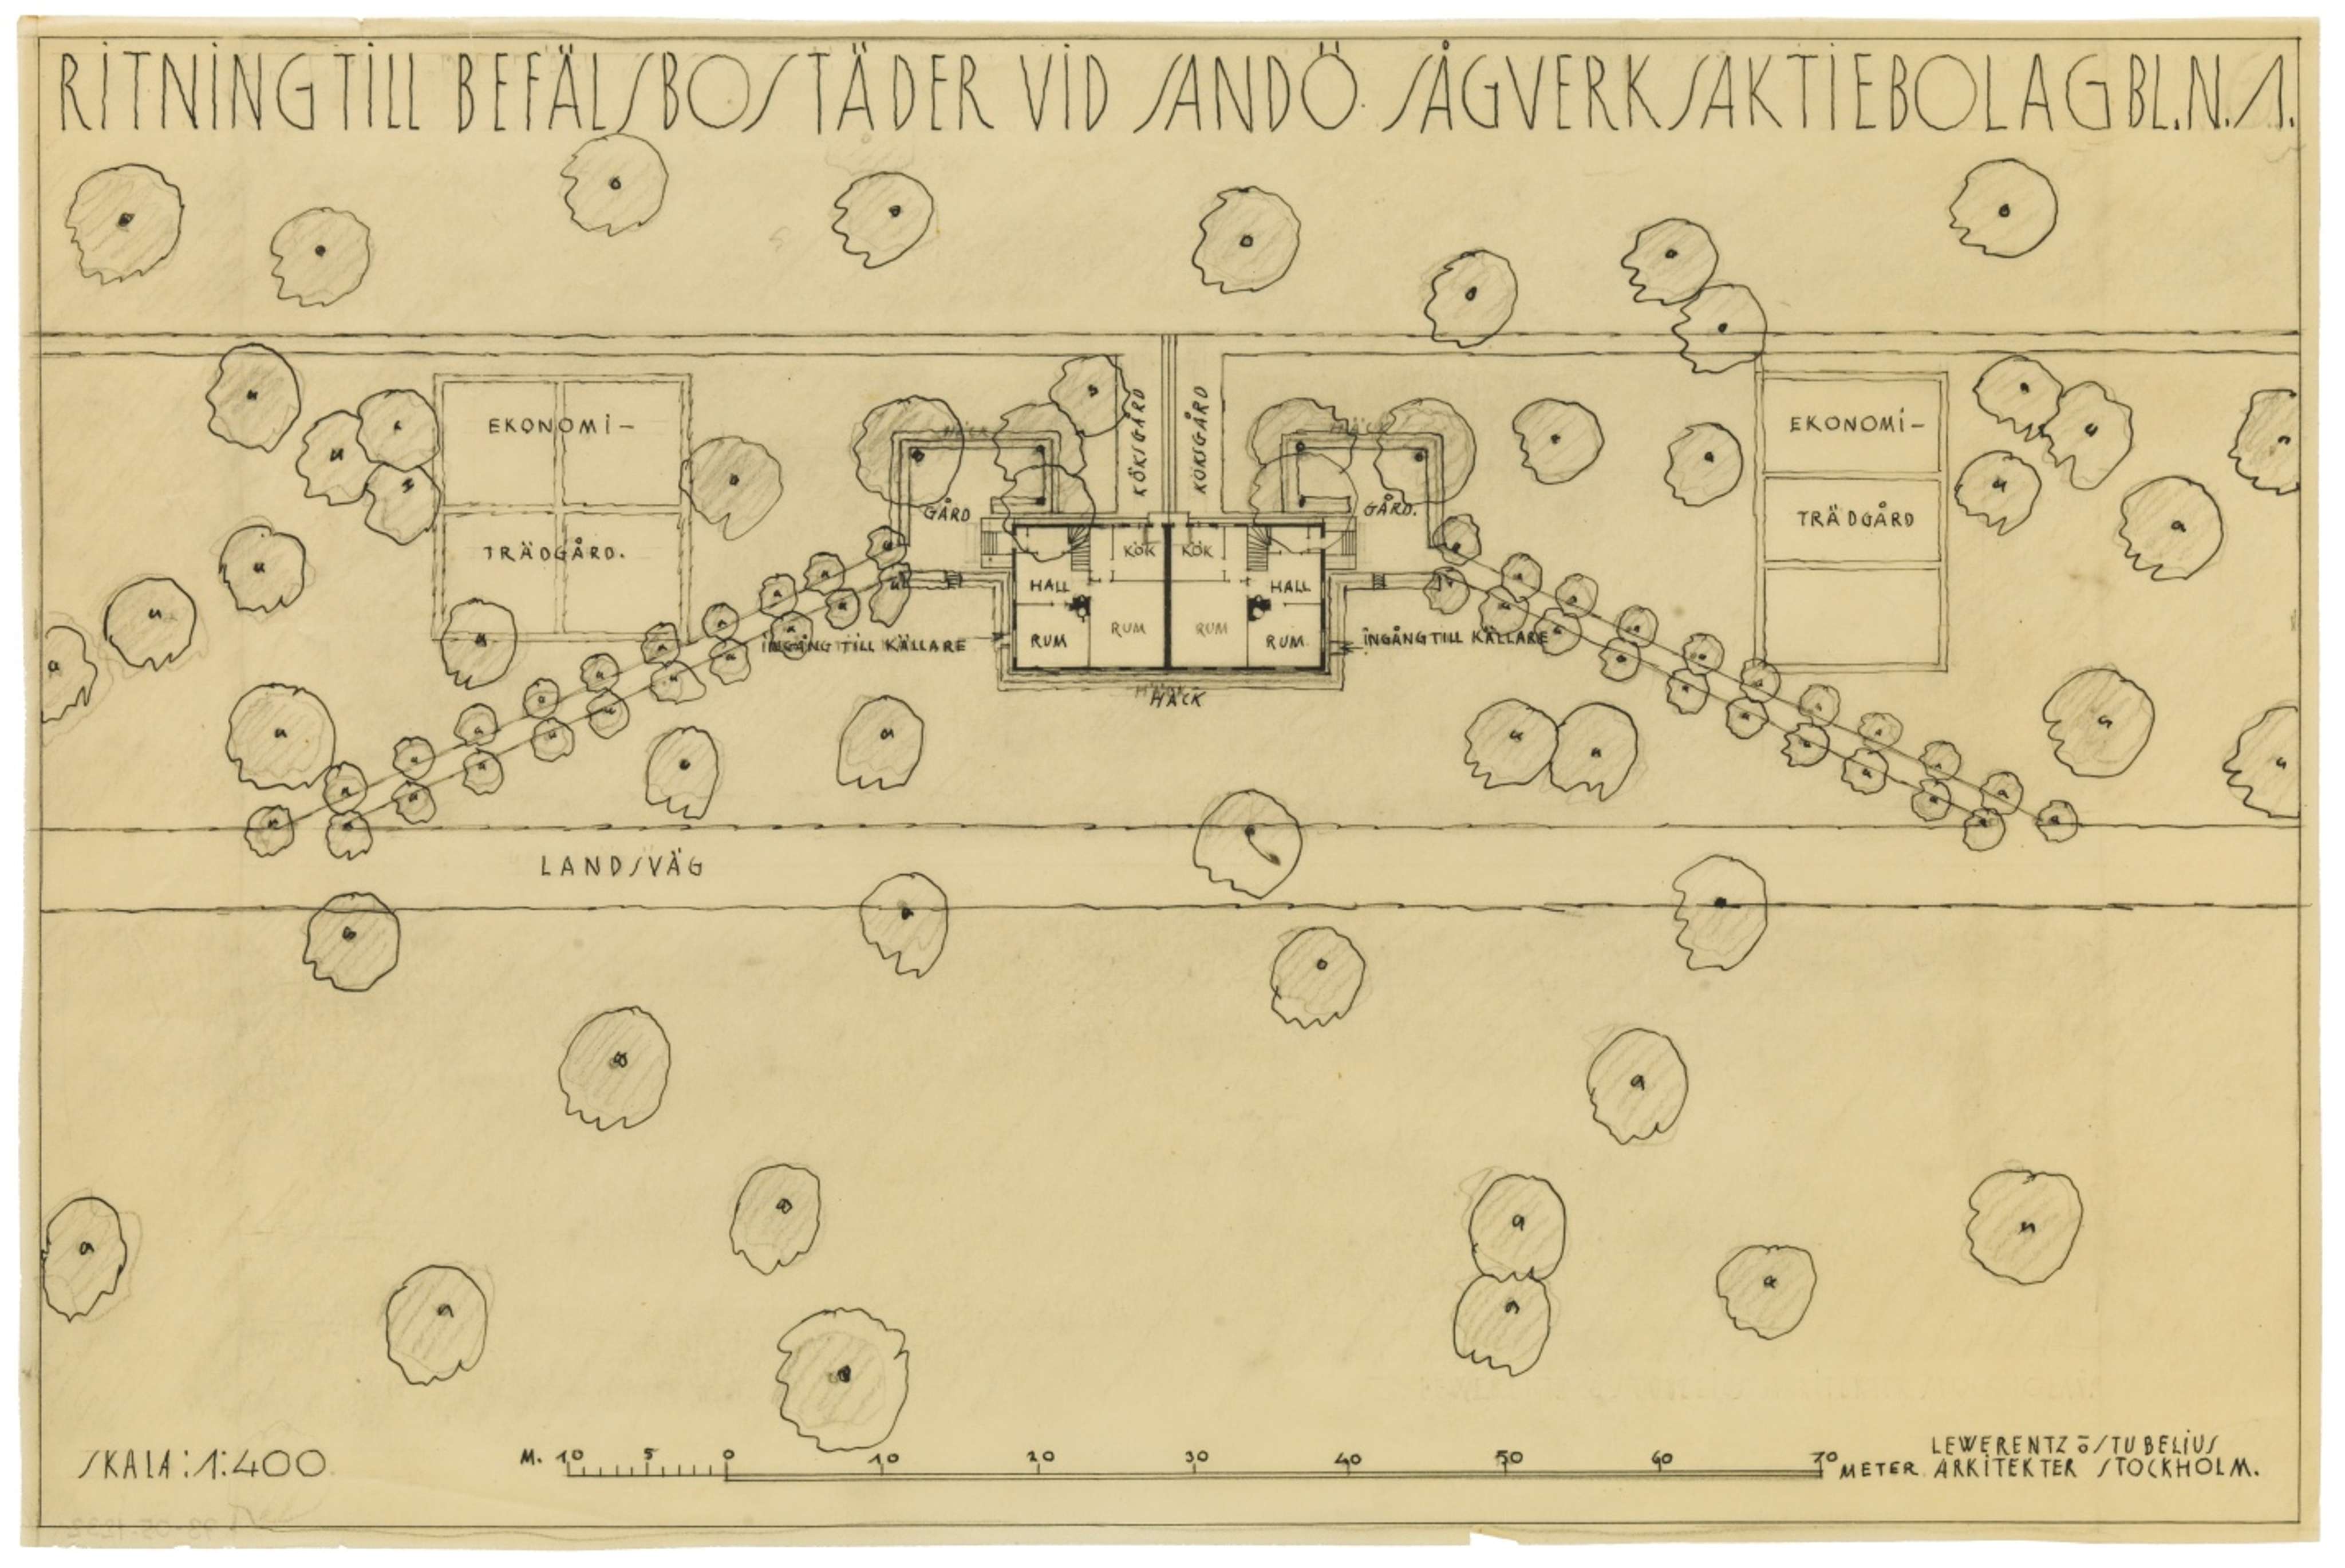 RITNING TILL BEFÄLSBOSTÄDER VID SANDÖ SÅGVERKSAKTIEBOLAG BL.N.1.
EKONOMI-
TRÄDGÅRD.
HÄCK
GÅRD
KÖKSGÅRD
KÖKSGÅRD
HÄCK
GÅRD.
EKONOMI-
TRÄDGÅRD
KÖK
KÖK
HALL
HALL
RUM
RUM
RUM
RUM
INGÅNG TILL KÄLLARE
INGÅNG TILL KÄLLARE
HÄCK
LANDSVÄG
SKALA: 1:400
M. 10 5 0 10 20 30 40 50 60 70 METER
LEWERENTZ O STUBELIUS
ARKITEKTER STOCKHOLM.